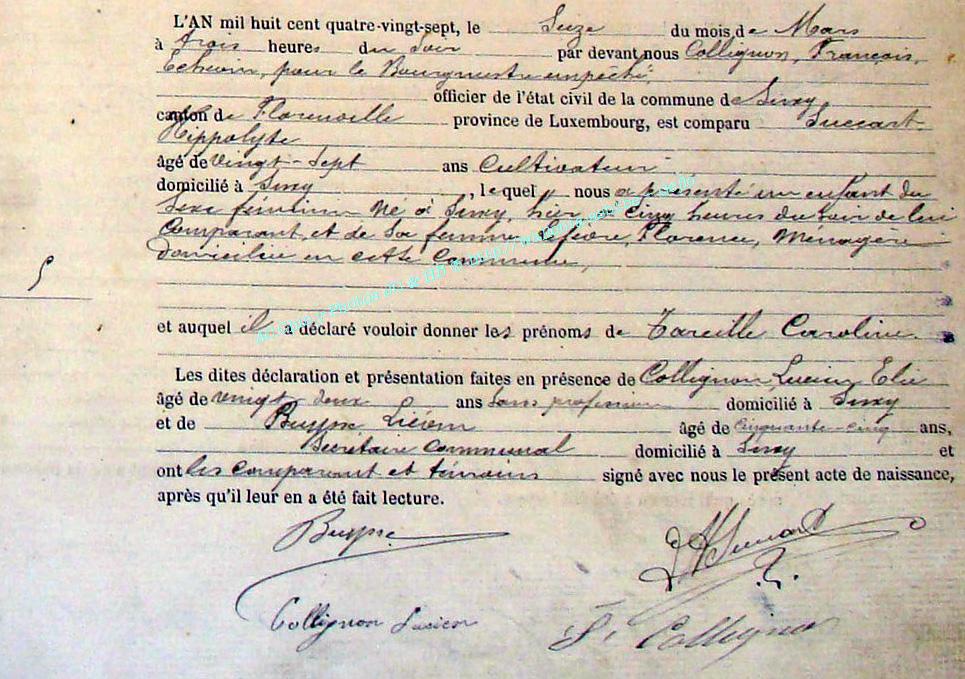 L'AN mil huit cent quatre-vingt-sept, le Seize du mois de Mars
à trois heures du Soir par devant nous Collignon, François,
Echevin, pour le Bourgmestre empêché,
officier de l'état civil de la commune de
canton de Florenville province de Luxembourg, est comparu
Hippolyte
âgé de vingt-sept ans Cultivateur
domicilié à , lequel nous a présenté un enfant du
Sexe féminin né à , hier à Cinq heures du soir de lui
Comparant, et de Sa femme Florence, Ménagère
domiciliée en cette Commune,
5
et auquel il a déclaré vouloir donner les prénoms de Caroline.
Les dites déclaration et présentation faites en présence de Collignon Lucien Elie
âgé de vingt deux ans Sans profession domicilié à
et de âgé de Cinquante-cinq ans,
Secrétaire Communal domicilié à et
ont les comparant et témoins signé avec nous le présent acte de naissance,
après qu'il leur en a été fait lecture.
Collignon Lucien
F. Collignon